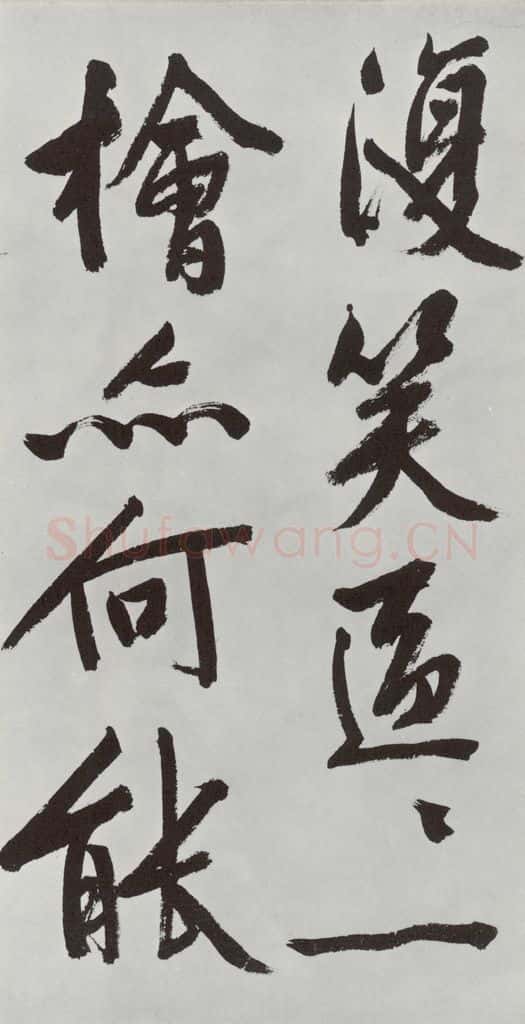 復笑區〻一
檜亦何能
Shufawang.CN